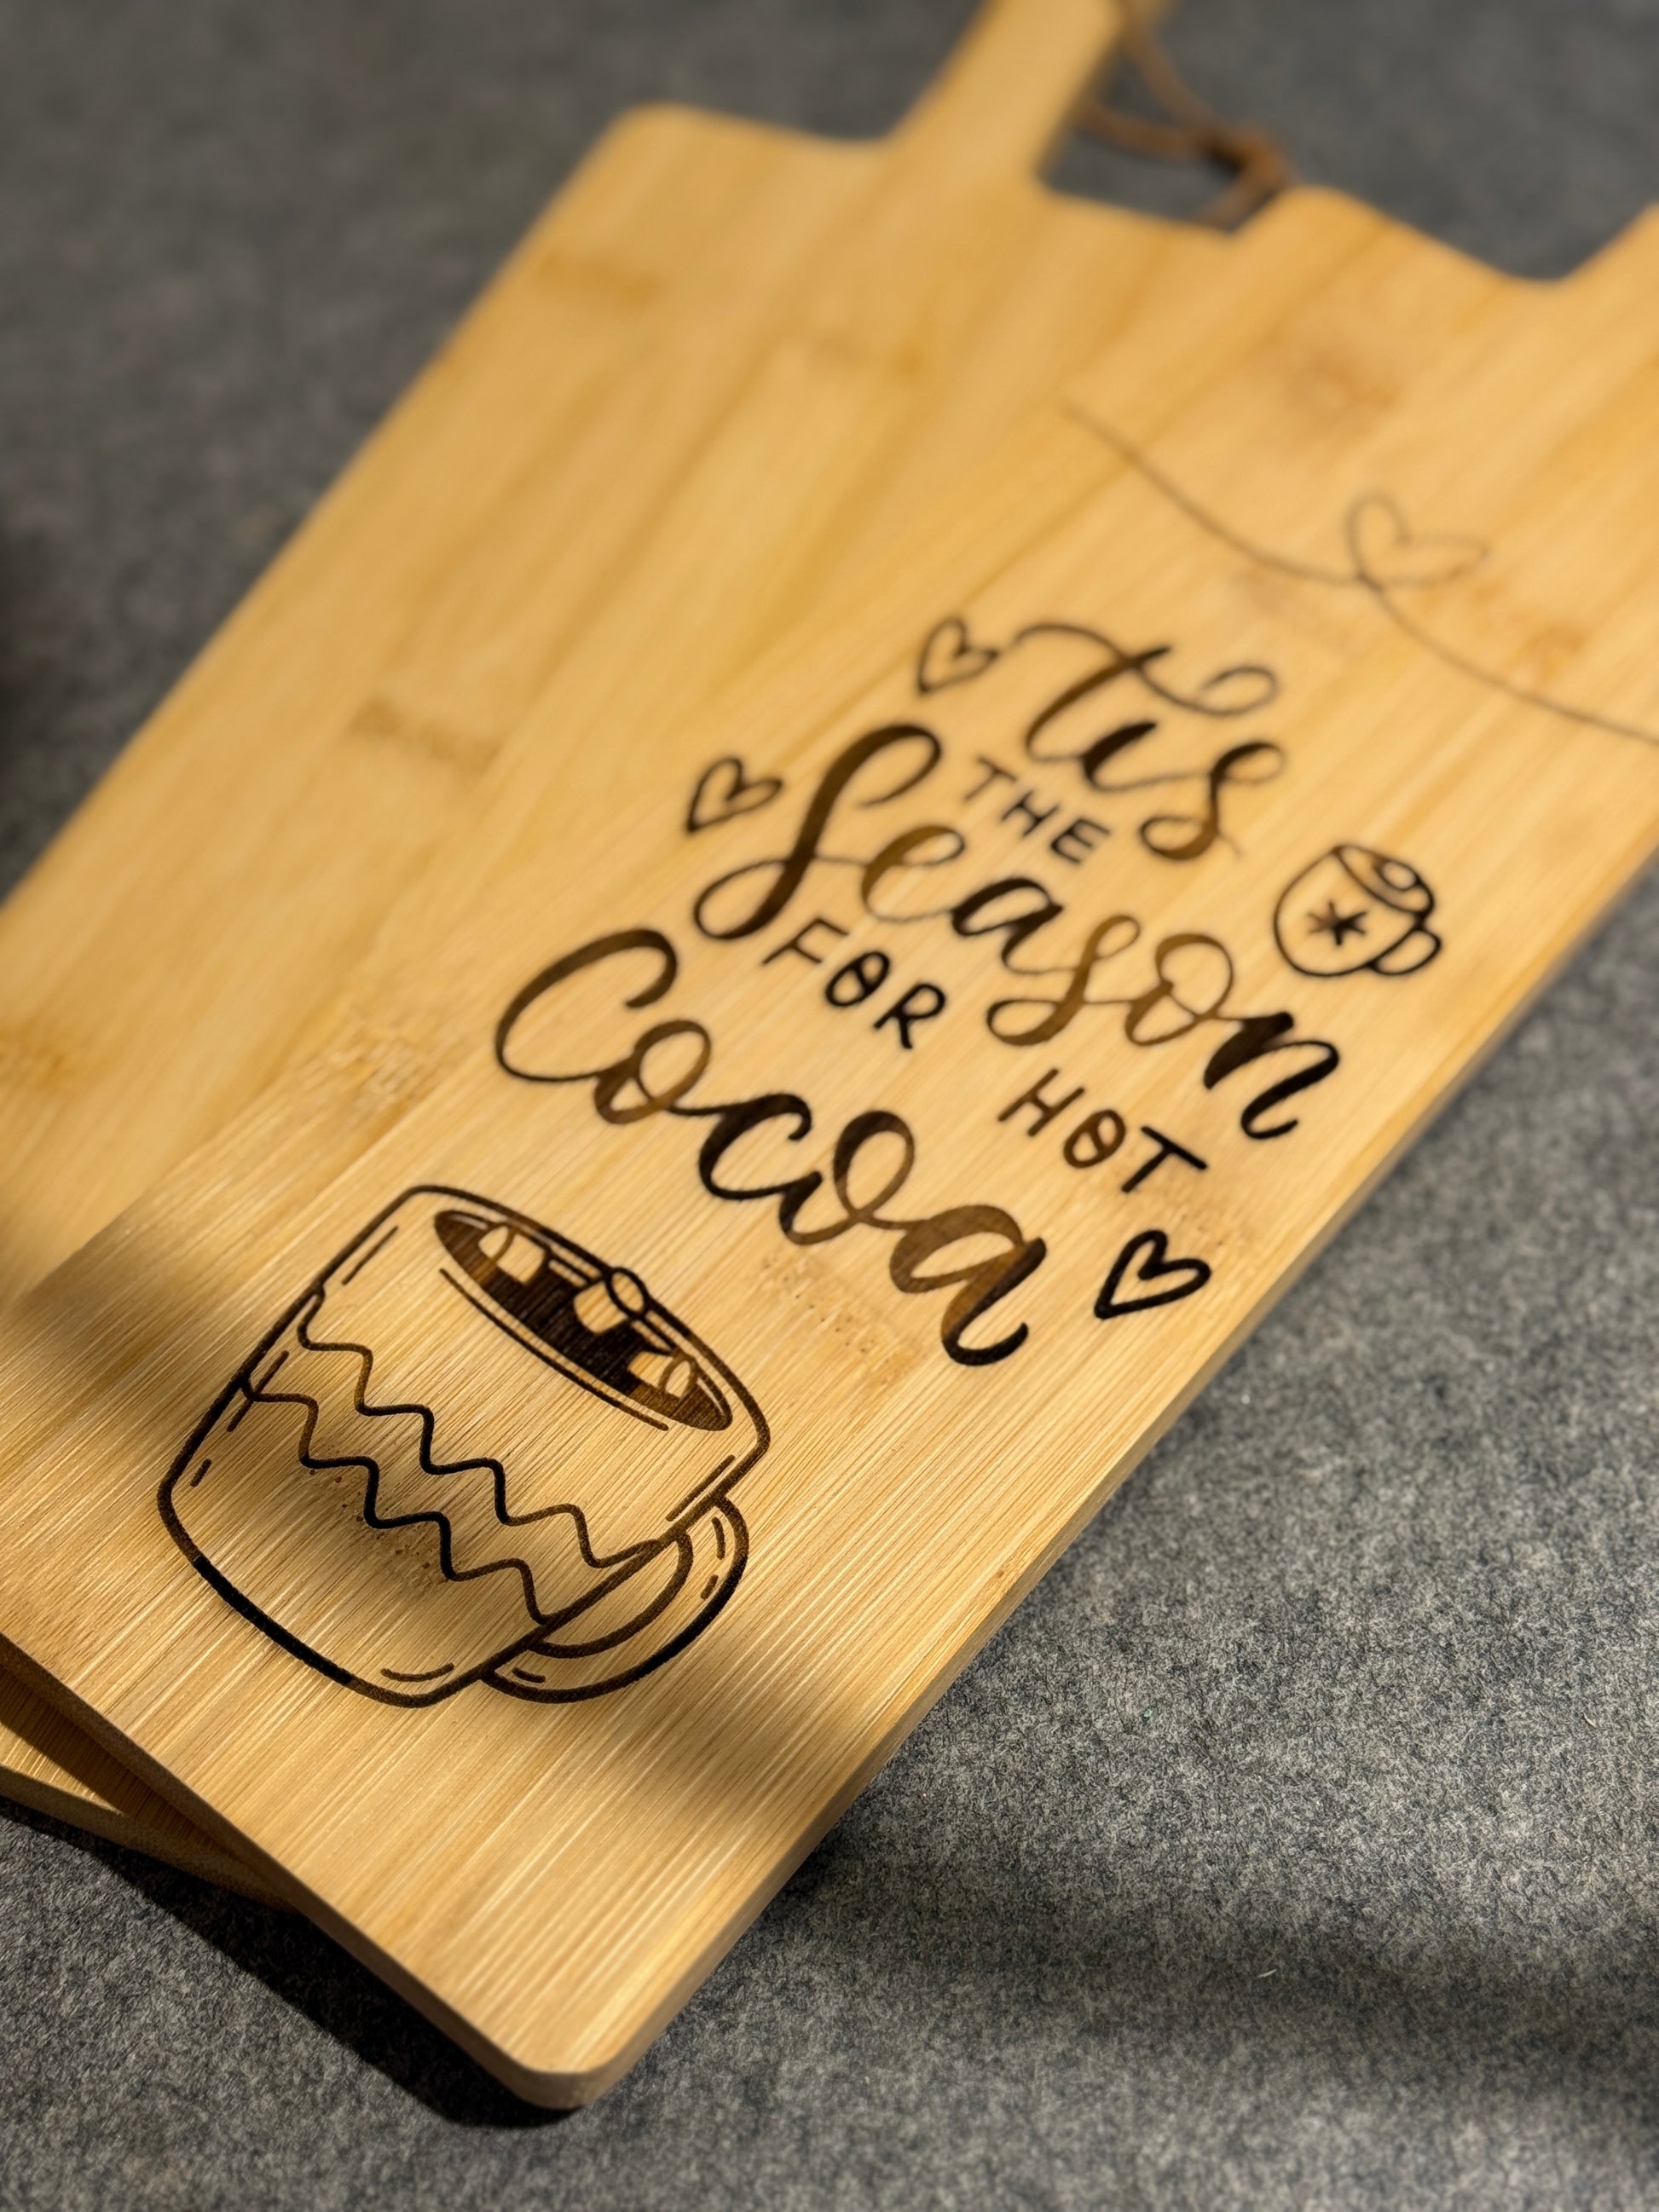 tis
THE
Season
FOR HOT
Cocoa